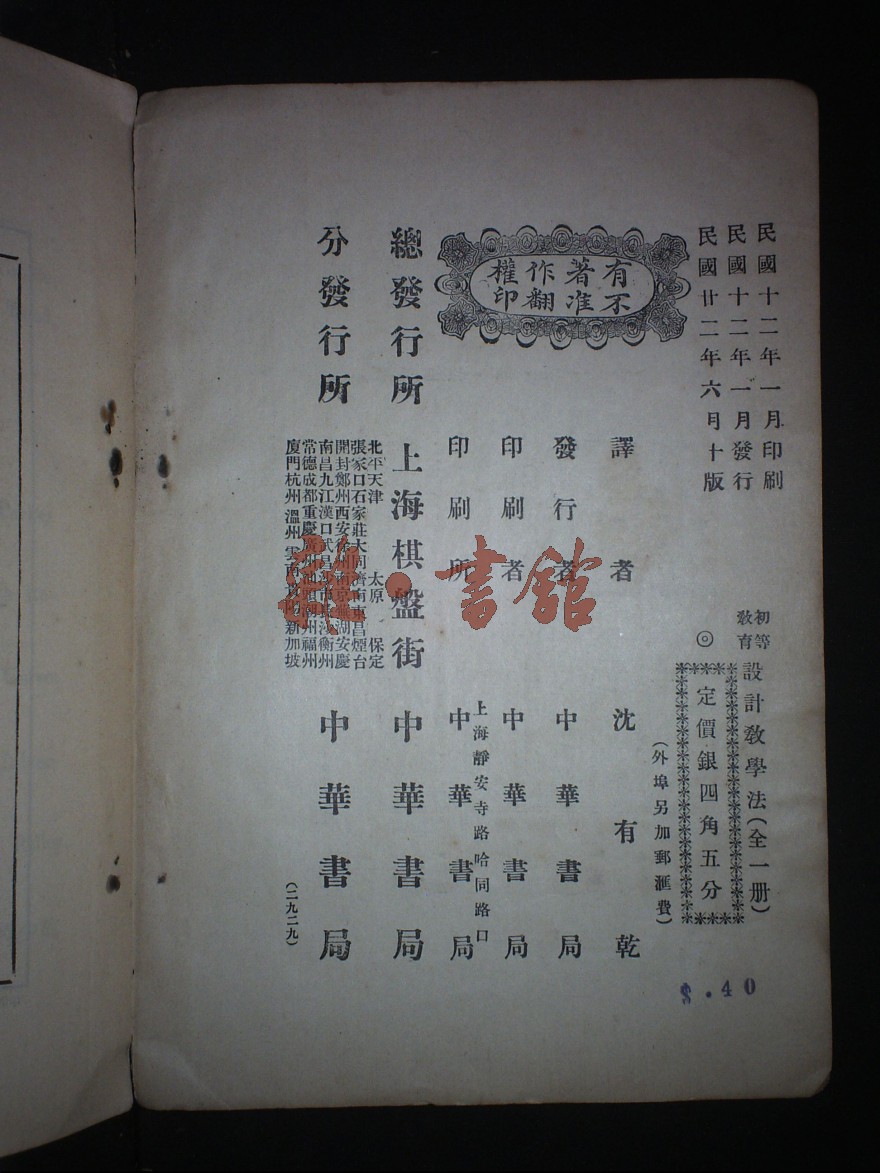 民國十二年一月印刷
民國十二年一月發行
民國廿二年六月十版
初等教育
設計教學法(全一册)
◎
定價銀四角五分
(外埠另加郵匯費)
有著作權
不准翻印
譯者 沈有乾
發行者 中華書局
印刷者 中華書局
上海靜安寺路哈同路口
印刷所 中華書局
總發行所 上海棋盤街 中華書局
北平天津 太原 保定
張家口石家莊大同濟南東昌煙台
開封鄭州西安徐州南京蕪湖安慶
南昌九江漢口武昌沙市 衡州
常德成都重慶廣州 潮州福州
廈門杭州溫州雲南 新加坡
分發行所 中華書局
(二九二九)
$.40
·書館